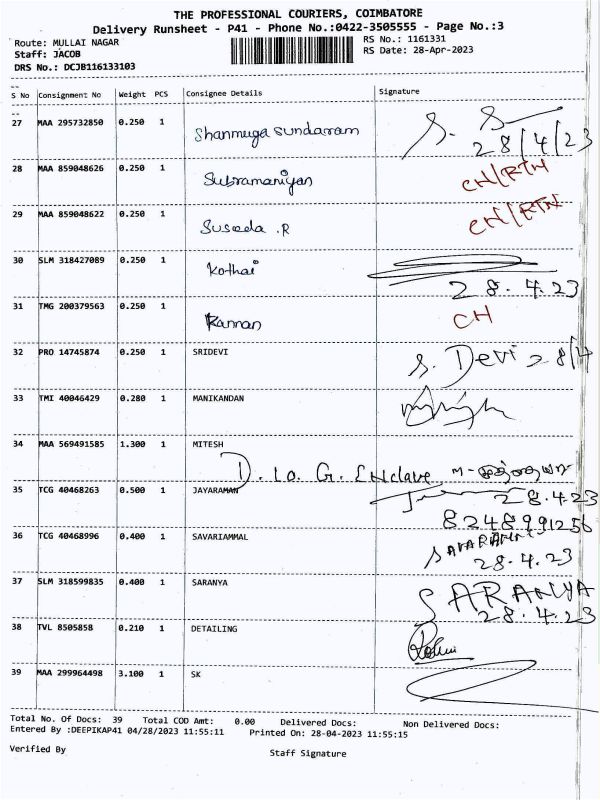 THE PROFESSIONAL COURIERS, COIMBATORE
Delivery Runsheet - P41 - Phone No.:0422-3505555 - Page No.:3
Route: MULLAI NAGAR RS No.: 1161331
Staff: JACOB RS Date: 28-Apr-2023
DRS No.: DCJB116133103
S No Consignment No Weight PCS Consignee Details Signature
27 MAA 295732850 0.250 1 Shanmuga Sundaram S. S
28/4/23
28 MAA 859048626 0.250 1 Subramaniyan CH/RTN
29 MAA 859048622 0.250 1 Suseela .R CH/RTN
30 SLM 318427089 0.250 1 Kothai
28.4.23
31 TMG 200379563 0.250 1 Kannan CH
32 PRO 14745874 0.250 1 SRIDEVI S. Devi 28/4
33 TMI 40046429 0.280 1 MANIKANDAN
34 MAA 569491585 1.300 1 MITESH
D. Lo. G. Enclave
35 TCG 40468263 0.500 1 JAYARAMAN 28.4.23
8248991256
36 TCG 40468996 0.400 1 SAVARIAMMAL
28.4.23
37 SLM 318599835 0.400 1 SARANYA SARANYA
28.4.23
38 TVL 8505858 0.210 1 DETAILING
39 MAA 299964498 3.100 1 SK
Total No. Of Docs: 39 Total COD Amt: 0.00 Delivered Docs: Non Delivered Docs:
Entered By :DEEPIKAP41 04/28/2023 11:55:11 Printed On: 28-04-2023 11:55:15
Verified By Staff Signature